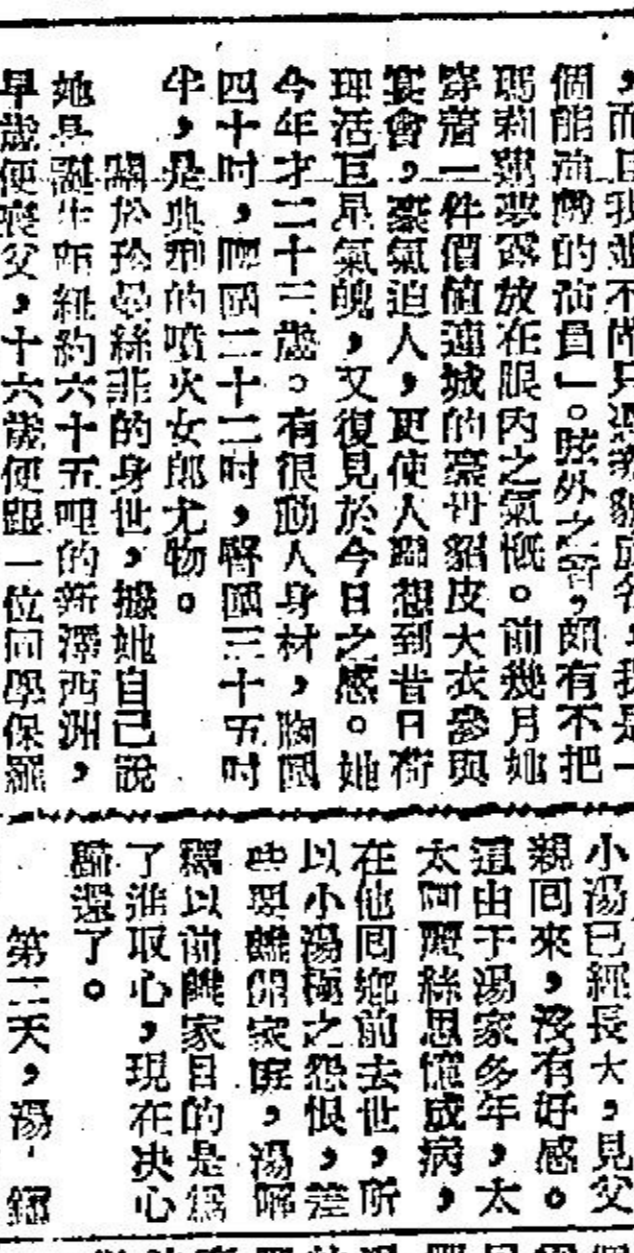 ，而且我並不僅只憑美貌成名，我是一
個能演戲的演員」。眩外之音，頗有不把
瑪莉蓮夢露放在眼內之氣慨。前幾月她
穿着一件價值連城的臺丹貂皮大衣參與
宴會，豪氣迫人，更使人聯想到昔日荷
理活巨星氣魄，又復見於今日之感。她
今年才二十三歲。有很動人身材，胸圍
四十吋，腰圍二十二吋，臀圍三十五吋
半，是典型的噴火女郎尤物。
關於珍曼絲菲的身世，據她自己說
她是誕生距紐約六十五哩的新澤西洲，
早歲便喪父，十六歲便跟一位同學保羅
小湯已經長大，見父
親回來，沒有好感。
這由于湯家多年，太
太阿麗絲思憶成病，
在他回鄉前去世，所
以小湯極之怨恨，差
些要離開家庭，湯解
釋以前離家目的是爲
了進取心，現在决心
歸還了。
第二天，湯